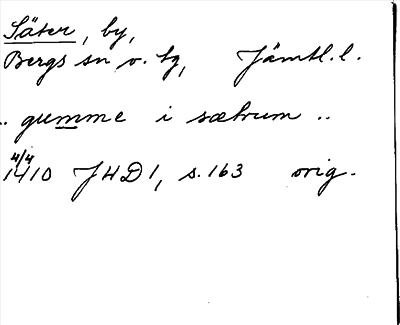 Säter, by,
Bergs sn o. tg, Jämtl. l.
.. gumme i sætrum ..
4/4
1410 JHD 1, s. 163 orig.